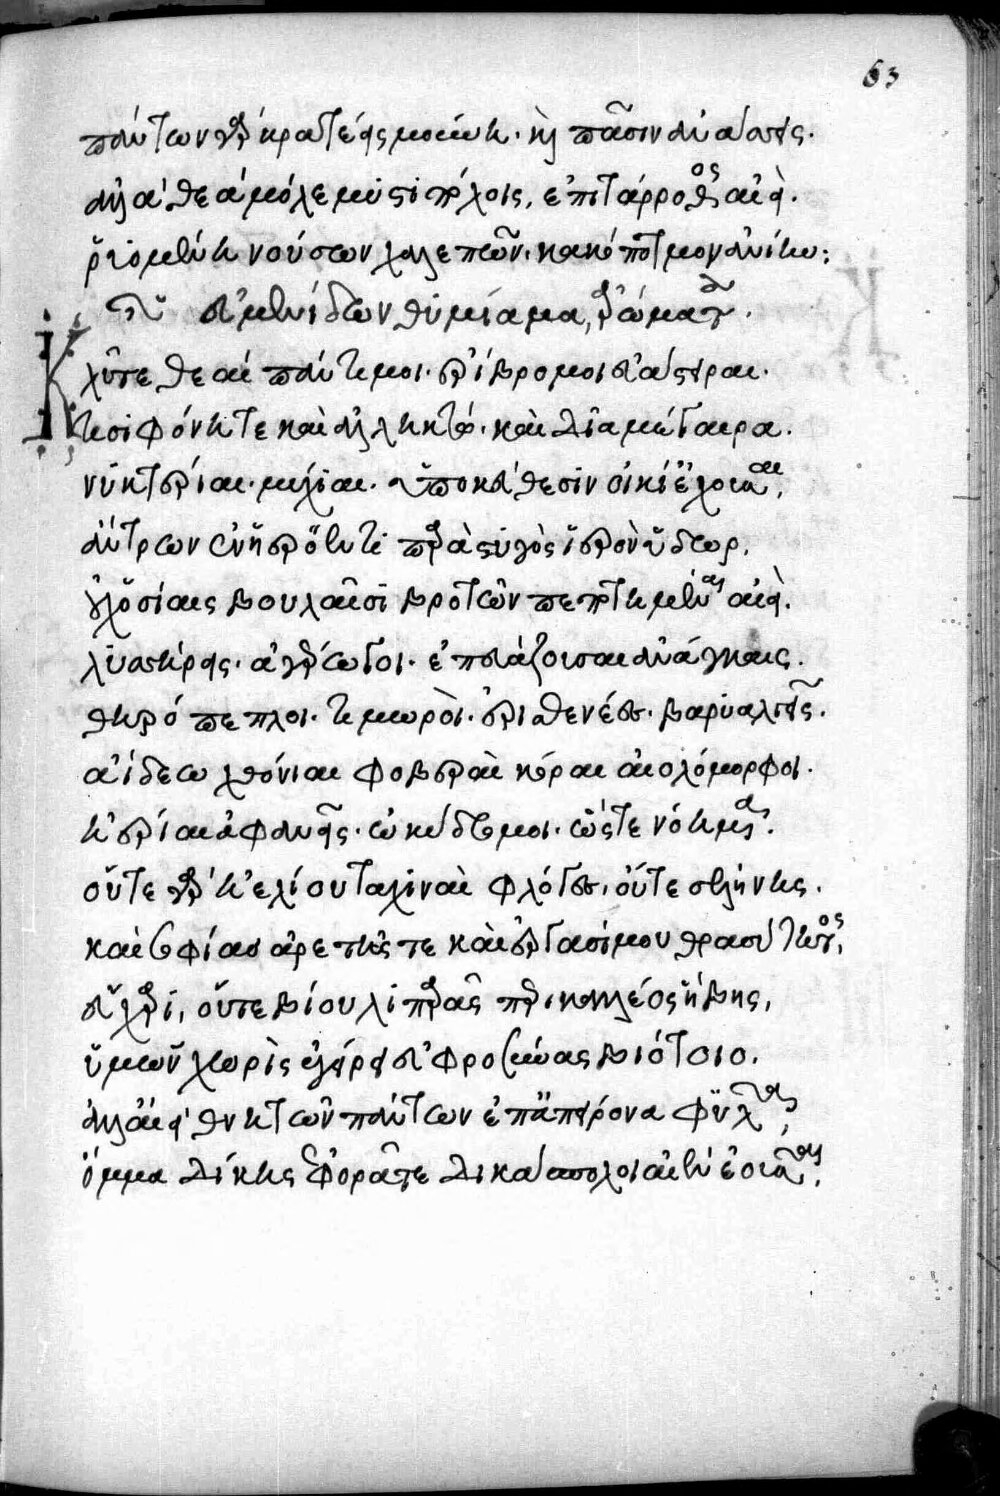 63
πάντων γὰρ κρατέεις μούνη. καὶ πᾶσιν ἀνάσσεις.
ἀλλὰ θεὰ μόλε μύστιπόλοις, ἐπιτάρροθος αἰεί.
ῥυομένη νούσων χαλεπῶν. κακόποτμον ἀνίην:
εὐμενίδων θυμίαμα, ἀρώματα.
Κλῦτε θεαὶ πάντιμοι. ἐρίβρομοι εὐάστειραι.
τισιφόνη τε καὶ ἀλληκτώ. καὶ δῖα μέγαιρα.
νυκτέριαι. μύχιαι. ὑπὸ κεύθεσιν οἰκί' ἔχουσαι,
ἄντρων ἐν ἠερόεντι παρὰ στυγὸς ἱερὸν ὕδωρ.
οὐχ ὁσίαις βουλαῖσι βροτῶν πεποτημέναι αἰεί.
λυσσήρεις. ἀγέρωχοι. ἐπευάζουσαι ἀνάγκαις.
θηρόπεπλοι. τιμωροὶ. ἐρισθενέες. βαρυαλγεῖς.
ἀΐδεω χθόνιαι φοβεραὶ κόραι αἰολόμορφοι.
ἠέριαι ἀφανεῖς. ὠκυδρόμοι. ὥστε νόημα.
οὔτε γὰρ ἠελίου ταχιναὶ φλόγες. οὔτε σελήνης.
καὶ σοφίας ἀρετῆς τε καὶ ἐργασίμου θρασύτητος,
εὔχαρι, οὔτε βίου λιπαρᾶς περικαλλέος ἥβης,
ὑμῶν χωρὶς ἐγείρει εὐφροσύνας βιότοιο.
ἀλλ' αἰεὶ θνητῶν πάντων ἐπ' ἀπείρονα φῦλα,
ὄμμα δίκης ἐφορᾶτε δικασπόλοι αἰὲν ἐοῦσαι.